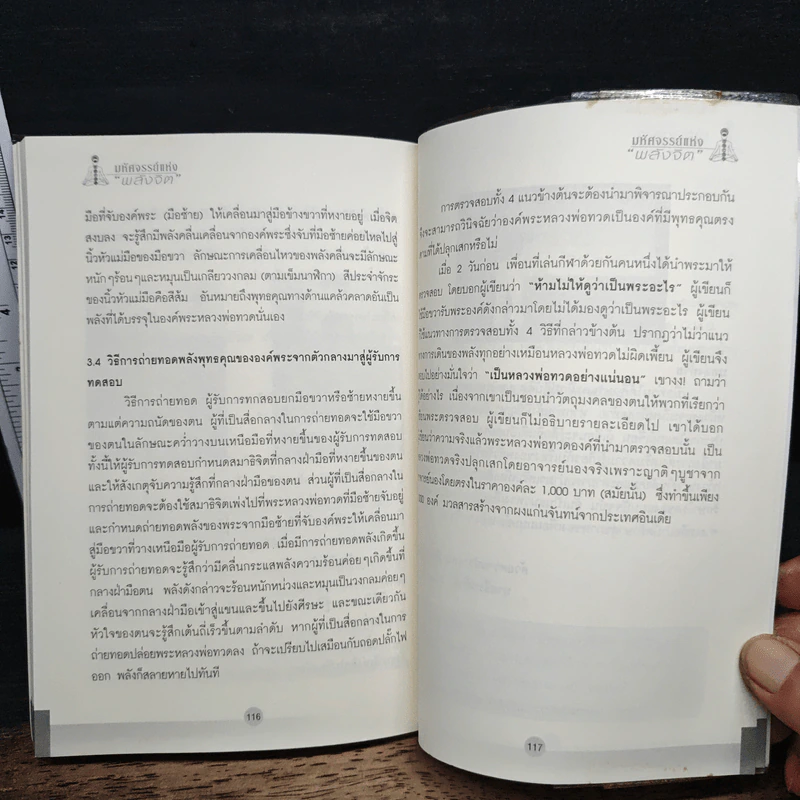 มหัศจรรย์แห่ง
“พลังจิต”
มือที่จับองค์พระ (มือซ้าย) ให้เคลื่อนมาสู่มือข้างขวาที่หงายอยู่ เมื่อจิต
สงบลง จะรู้สึกมีพลังคลื่นเคลื่อนจากองค์พระซึ่งจับที่มือซ้ายค่อยไหลไปสู่
นิ้วหัวแม่มือของมือขวา ลักษณะการเคลื่อนไหวของพลังคลื่นจะมีลักษณะ
หนักๆร้อนๆและหมุนเป็นเกลียววงกลม (ตามเข็มนาฬิกา) สีประจำจักระ
ของนิ้วหัวแม่มือคือสีส้ม อันหมายถึงพุทธคุณทางด้านแคล้วคลาดอันเป็น
พลังที่ได้บรรจุในองค์พระหลวงพ่อทวดนั่นเอง
3.4 วิธีการถ่ายทอดพลังพุทธคุณขององค์พระจากตัวกลางมาสู่ผู้รับการ
ทดสอบ
วิธีการถ่ายทอด ผู้รับการทกสอบยกมือขวาหรือซ้ายหงายขึ้น
ตามแต่ความถนัดของตน ผู้ที่เป็นสื่อกลางในการถ่ายทอดจะใช้มือขวา
ของตนในลักษณะคว่ำวางบนเหนือมือที่หงายขึ้นของผู้รับการทดสอบ
ทั้งนี้ให้ผู้รับการทดสอบกำหนดสมาธิจิตที่กลางฝ่ามือที่หงายขึ้นของตน
และให้สังเกตุจับความรู้สึกที่กลางฝ่ามือของตน ส่วนผู้ที่เป็นสื่อกลางใน
การถ่ายทอดจะต้องใช้สมาธิจิตเพ่งไปที่พระหลวงพ่อทวดที่มือซ้ายจับอยู่
และกำหนดถ่ายทอดพลังของพระจากมือซ้ายที่จับองค์พระให้เคลื่อนมา
สู่มือขวาที่วางเหนือมือผู้รับการถ่ายทอด เมื่อมีการถ่ายทอดพลังเกิดขึ้น
ผู้รับการถ่ายทอดจะรู้สึกว่ามีคลื่นกระแสพลังความร้อนค่อยๆเกิดขึ้นที่
กลางฝ่ามือตน พลังดังกล่าวจะร้อนหนักหน่วงและหมุนเป็นวงกลมค่อยๆ
เคลื่อนจากกลางฝ่ามือเข้าสู่แขนและขึ้นไปยังศีรษะ และขณะเดียวกัน
หัวใจของตนจะรู้สึกเต้นถี่เร็วขึ้นตามลำดับ หากผู้ที่เป็นสื่อกลางในการ
ถ่ายทอดปล่อยพระหลวงพ่อทวดลง ถ้าจะเปรียบไปเสมือนกับถอดปลั๊กไฟ
ออก พลังก็สลายหายไปทันที
116
มหัศจรรย์แห่ง
“พลังจิต”
การตรวจสอบทั้ง 4 แนวข้างต้นจะต้องนำมาพิจารณาประกอบกัน
จึงจะสามารถวินิจฉัยว่าองค์พระหลวงพ่อทวดเป็นองค์ที่มีพุทธคุณตรง
ตามที่ได้ปลุกเสกหรือไม่
เมื่อ 2 วันก่อน เพื่อนที่เล่นกีฬาด้วยกันคนหนึ่งได้นำพระมาให้
ตรวจสอบ โดยบอกผู้เขียนว่า “ห้ามไม่ให้ดูว่าเป็นพระอะไร” ผู้เขียนก็
ใช้มือขวารับพระองค์ดังกล่าวมาโดยไม่ได้มองดูว่าเป็นพระอะไร ผู้เขียน
ใช้แนวทางการตรวจสอบทั้ง 4 วิธีที่กล่าวข้างต้น ปรากฏว่าไม่ว่าแนว
ทางการเดินของพลังทุกอย่างเหมือนหลวงพ่อทวดไม่ผิดเพี้ยน ผู้เขียนจึง
ตอบไปอย่างมั่นใจว่า “เป็นหลวงพ่อทวดอย่างแน่นอน” เขางง! ถามว่า
ได้อย่างไร เนื่องจากเขาเป็นชอบนำวัตถุมงคลของตนให้พวกที่เรียกว่า
พระตรวจสอบ ผู้เขียนก็ไม่อธิบายรายละเอียดไป เขาได้บอก
ว่าความจริงแล้วพระหลวงพ่อทวดองค์ที่นำมาตรวจสอบนั้น เป็น
พ่อทวดจริงปลุกเสกโดยอาจารย์นองจริงเพราะญาติๆบูชาจาก
นองโดยตรงในราคาองค์ละ 1,000 บาท (สมัยนั้น) ซึ่งทำขึ้นเพียง
องค์ มวลสารสร้างจากผงแก่นจันทน์จากประเทศอินเดีย
117